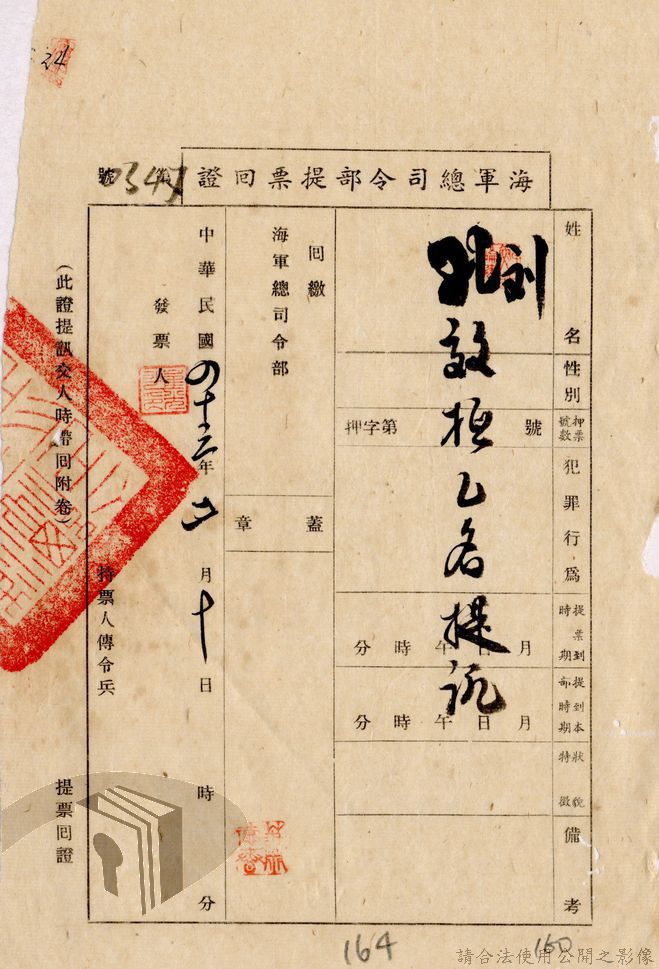 24
海軍總司令部提票回證 第 號
姓名
性別
押票號數
犯罪行為
提票到時期
提到本部時期
狀貌特徵
備考
押字第 號
月 日 午 時 分
月 日 午 時 分
乙名提訊
回繳
海軍總司令部
蓋章
中華民國四十三年 月十日 時 分
發票人
持票人傳令兵
(此證提訊交人時帶回附卷)
提票回證
164
160
請合法使用公開之影像